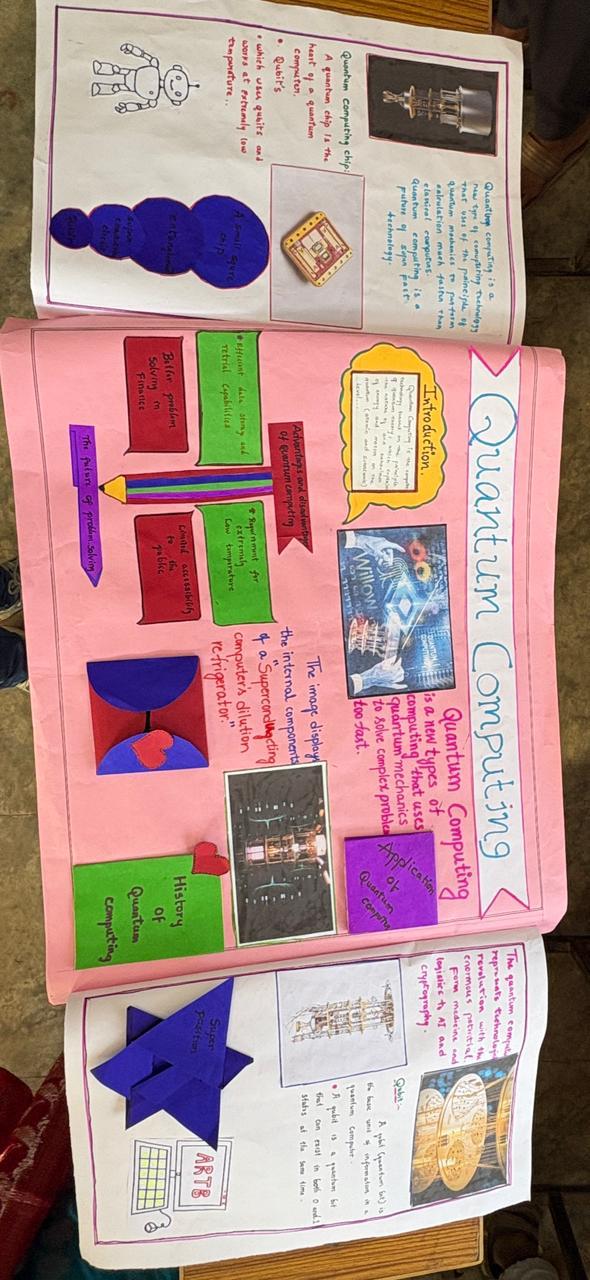 Quantum computing chip:
A quantum chip is the
heart of a quantum
computer.
• Qubit's
• which use qubits and
works at extremely low
temperature..
Quantum computing is a
new type of computing technology
that uses of the principle of
quantum mechanics to perform
calculation much faster than
classical computers.
Quantum computing is a
future of technology.
A small square
chip
Entanglement
Quantum Computing
Introduction.
Quantum Computing is the
WILLOW
Quantum Computing
is a new types of
computing that uses
quantum mechanics
to solve complex problem
too fast.
Application
of
Quantum
computing
Advantages and disadvantages
of quantum computing
Efficient data storage and
retrival capabilities
Better problem
solving in
Finance
Requirement for
extremely
low temperature
Limited accessibility
to the
public
The future of problem solving
The image displays
the internal components
of a "Superconducting
computer's dilution
refrigerator."
History
of
Quantum
computing
The quantum compute
represents technologic
revolution with the
enormous potential,
form medicine and
logistics to AI and
cryptography.
Qubit:-
A qubit (quantum bit) is
the basic unit of information in a
quantum computer.
• A qubit is a quantum bit
that can exist in both 0 and 1
states at the same time.
Super
position
ARTB